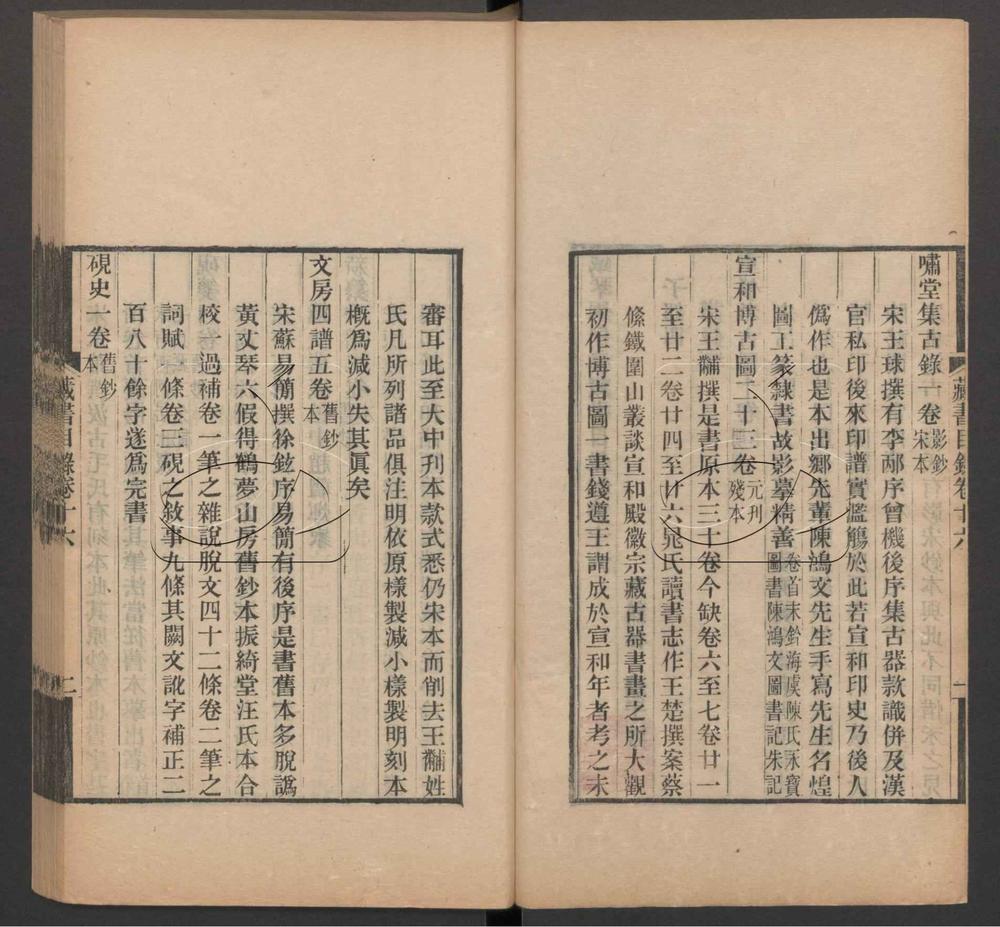 嘯堂集古錄一卷影鈔宋本
宋王球撰有李邴序曾機後序集古器款識併及漢
官私印後來印譜實濫觴於此若宣和印史乃後人
偽作也是本出鄉先輩陳鴻文先生手寫先生名煌
圖工篆隸書故影摹精善卷首末鈐海虞陳氏永寶圖書陳鴻文圖書記朱記
宣和博古圖二十三卷元刊殘本
宋王黼撰是書原本三十卷今缺卷六至七卷廿一
至廿二卷廿四至廿六晁氏讀書志作王楚撰案蔡
絛鐵圍山叢談宣和殿徽宗藏古器書畫之所大觀
初作博古圖一書錢遵王謂成於宣和年者考之未
藏書目錄卷十六
一
審耳此至大中刊本款式悉仍宋本而削去王黼姓
氏凡所列諸品俱注明依原樣製減小樣製明刻本
概爲減小失其眞矣
文房四譜五卷舊鈔本
宋蘇易簡撰徐鉉序易簡有後序是書舊本多脫譌
黃丈琴六假得鶴夢山房舊鈔本振綺堂汪氏本合
校一過補卷一筆之雜說脫文四十二條卷二筆之
詞賦一條卷三硯之敘事九條其闕文訛字補正二
百八十餘字遂爲完書
硯史一卷舊鈔本
藏書目錄卷十六
二